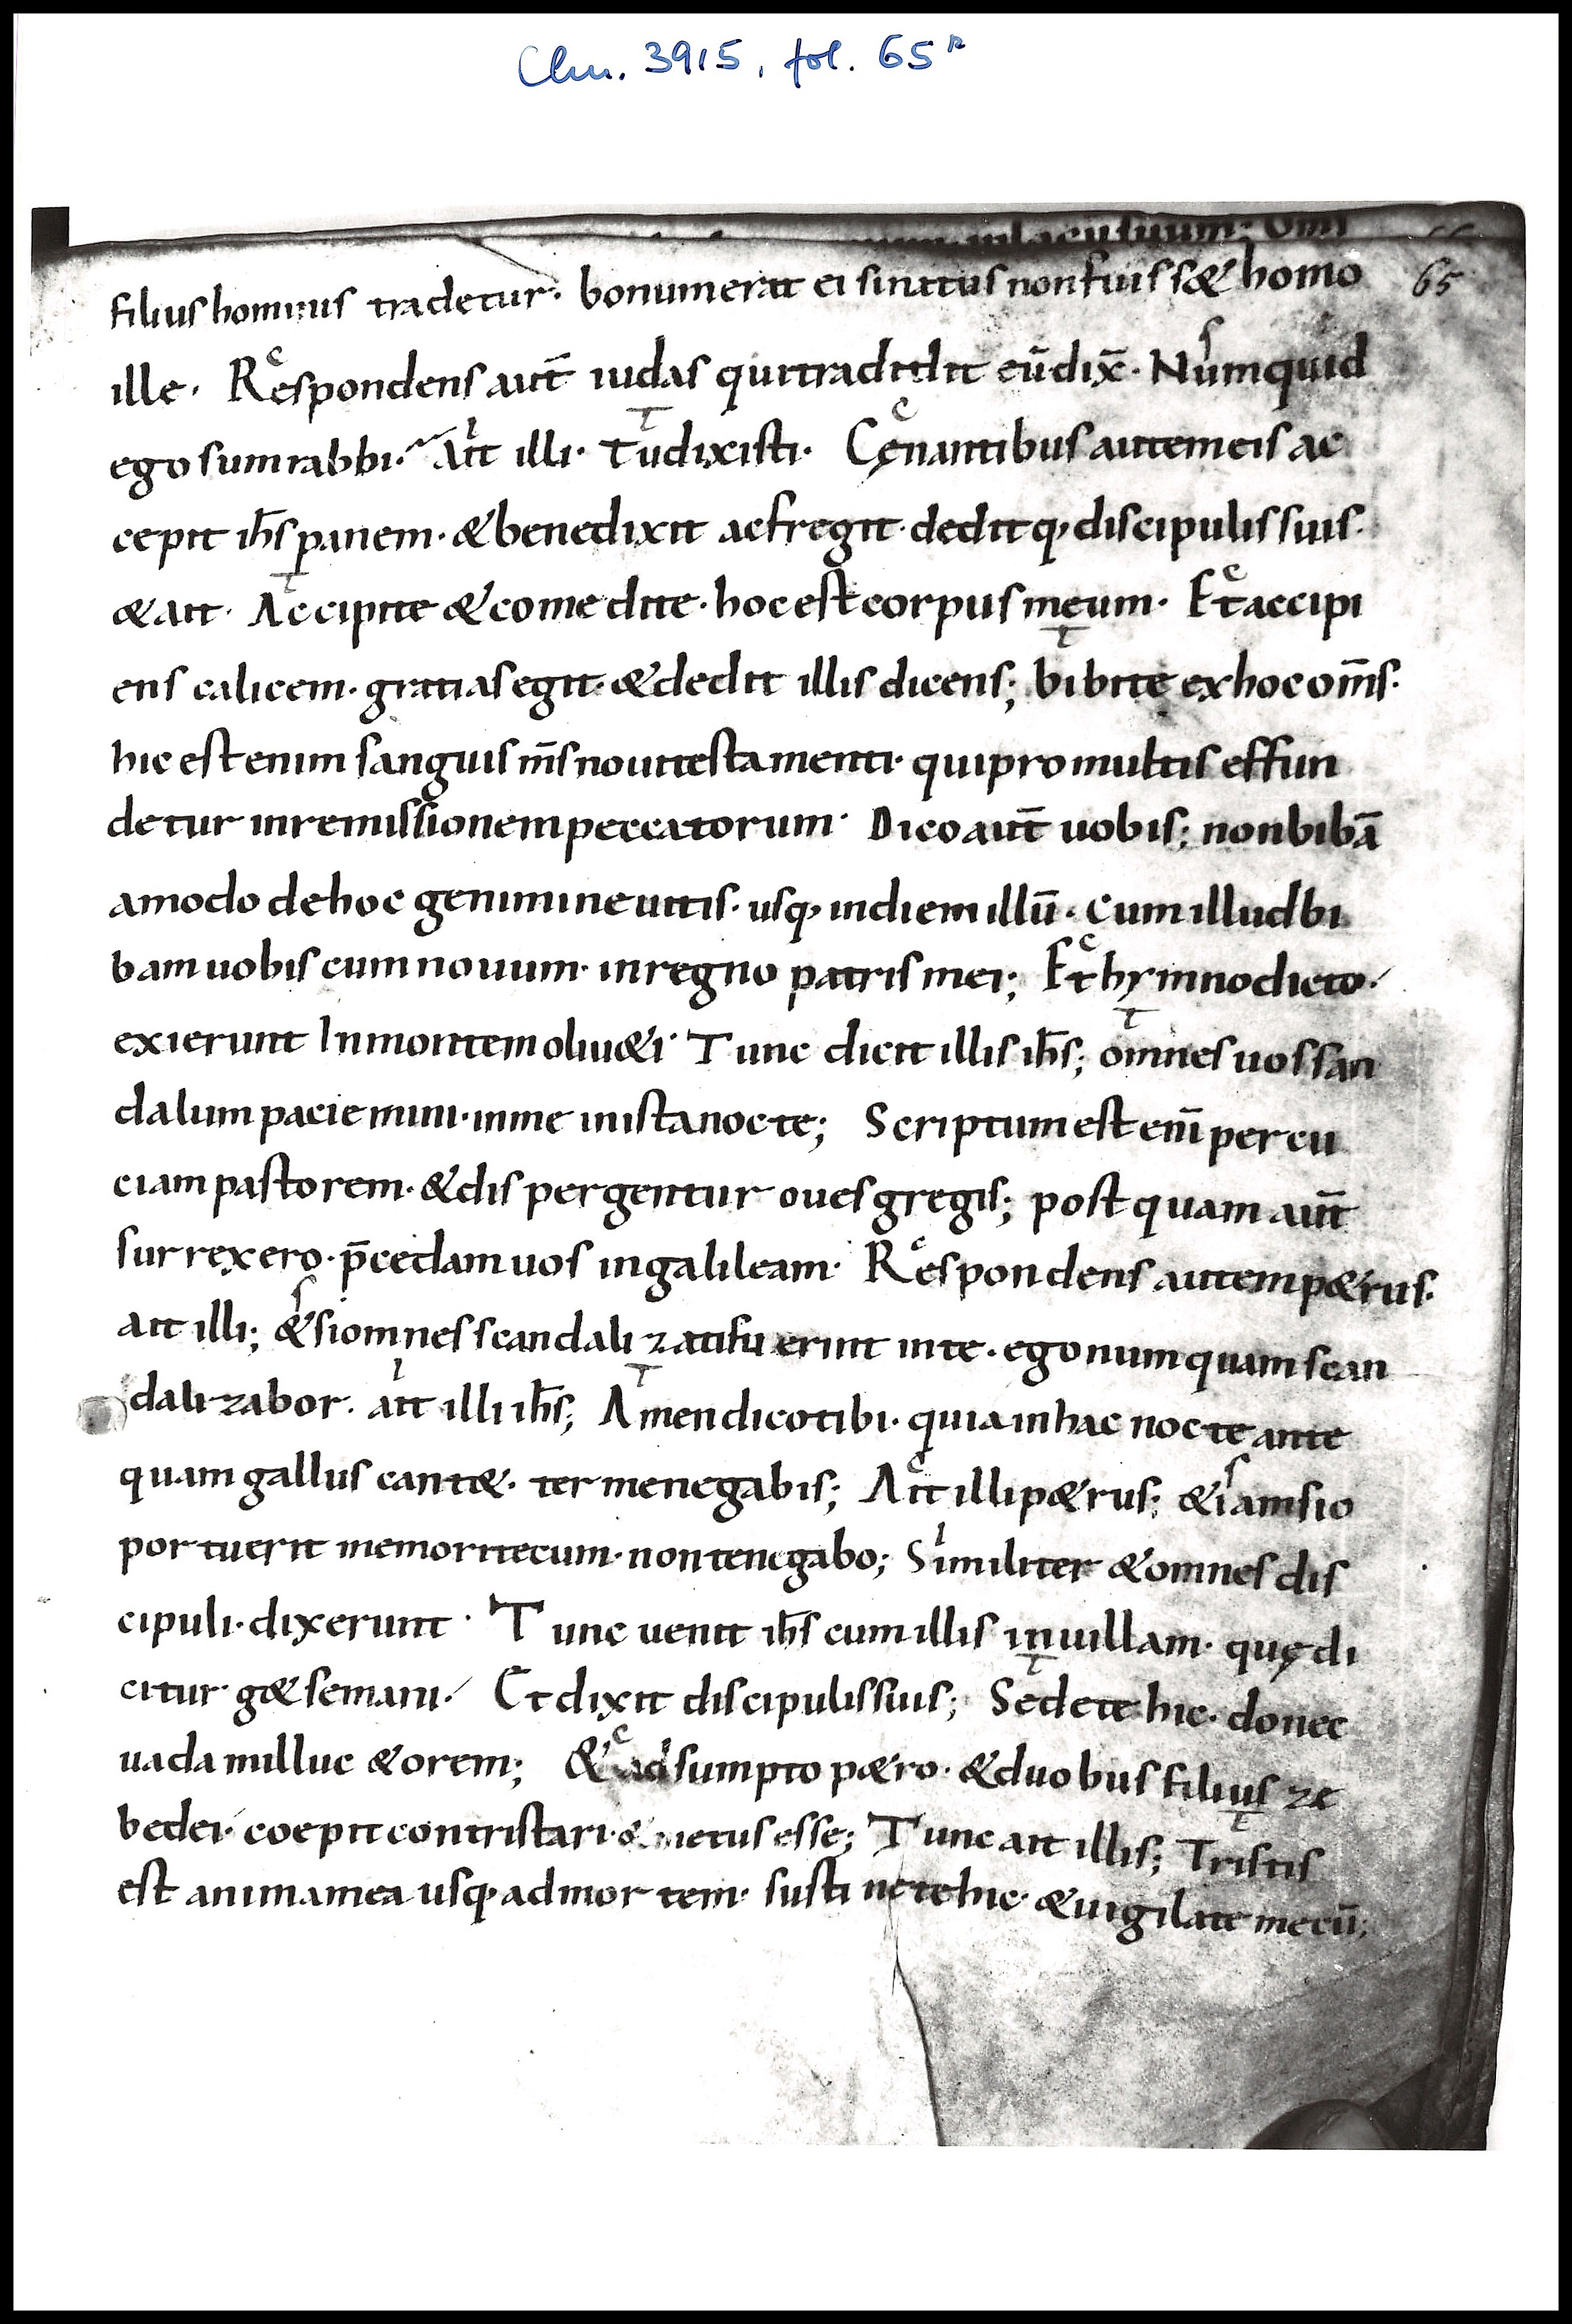 Clm. 3915, fol. 65r
65
filius hominis tradetur· bonum erat ei si natus non fuiss& homo
ille· Respondens aut̄ iudas qui tradidit eū dix̄· Numquid
ego sum rabbi· Ait illi· Tu dixisti· Cęnantibus autem eis ac
cepit ih̄s panem· & benedixit ac fregit· deditq· discipulis suis·
& ait· Accipite & comedite· hoc est corpus meum· Et accipi
ens calicem· gratias egit· & dedit illis dicens; bibite ex hoc om̄s·
hic est enim sanguis m̄s noui testamenti· qui pro multis effun
detur in remissionem peccatorum· Dico aut̄ uobis; non bibā
amodo de hoc genimine uitis· usq· in diem illū· cum illud bi
bam uobiscum nouum· in regno patris mei; Et hymno dicto·
exierunt In montem oliu&i· Tunc dicit illis ih̄s; omnes uos san
dalum paciemini· in me in ista nocte; Scriptum est enī percu
ciam pastorem· & dispergentur oues gregis; post quam aut̄
surrexero· p̄cedam uos in galileam· Respondens autem p&rus·
ait illi; & si omnes scandalizati fuerint in te· ego numquam scan
dalizabor· ait illi ih̄s; Amen dico tibi· quia in hac nocte ante
quam gallus cant&· ter me negabis; Ait illi p&rus; & iam si o
portuerit me mori tecum· non te negabo; Similiter & omnes dis
cipuli· dixerunt· Tunc uenit ih̄s cum illis in uillam· quę di
citur g&semani· Et dixit discipulis suis; Sedete hic· donec
uadam illuc & orem; & adsumpto p&ro· & duobus filiis ze
bedei· coepit contristari· & metus esse; Tunc ait illis; Tristis
est anima mea usq· ad mortem· sustinete hic· & uigilate mecū;